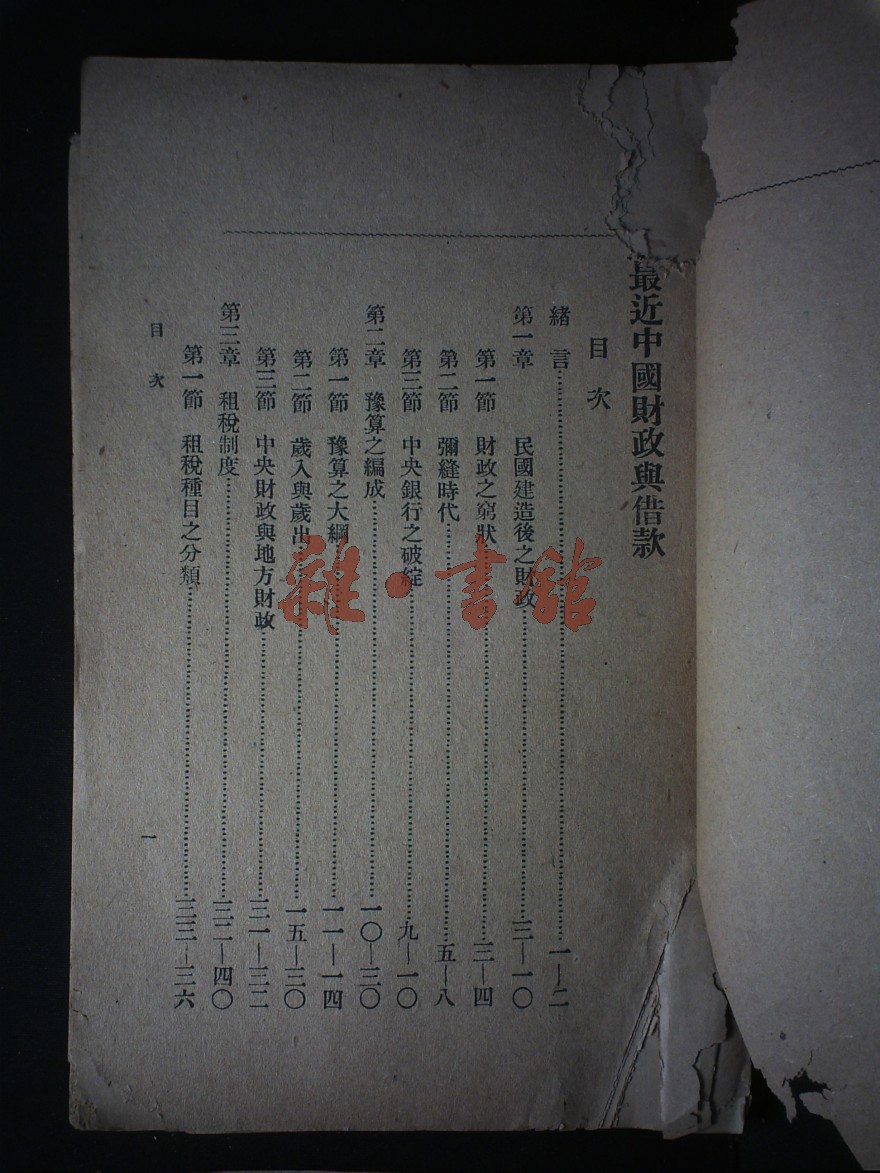 最近中國財政與借款
目次
緒言……一—二
第一章 民國建造後之財政……三—一〇
第一節 財政之窮狀……三—四
第二節 彌縫時代……五—八
第三節 中央銀行之破綻……九—一〇
第二章 豫算之編成……一〇—三〇
第一節 豫算之大綱……一一—一四
第二節 歲入與歲出……一五—三〇
第三節 中央財政與地方財政……三一—三二
第三章 租稅制度……三二—四〇
第一節 租稅種目之分類……三三—三六
目次
一
雜·書館